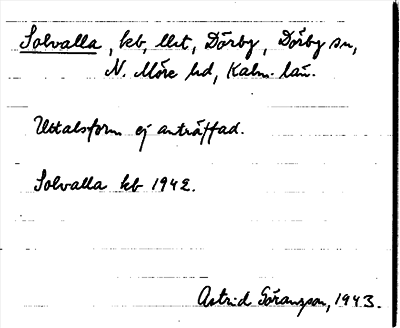 Solvalla, kb, llt, Dörby, Dörby sn,
N. Möre hd, Kalm. län.
Uttalsform ej anträffad.
Solvalla kb 1942.
Astrid Göransson, 1943.